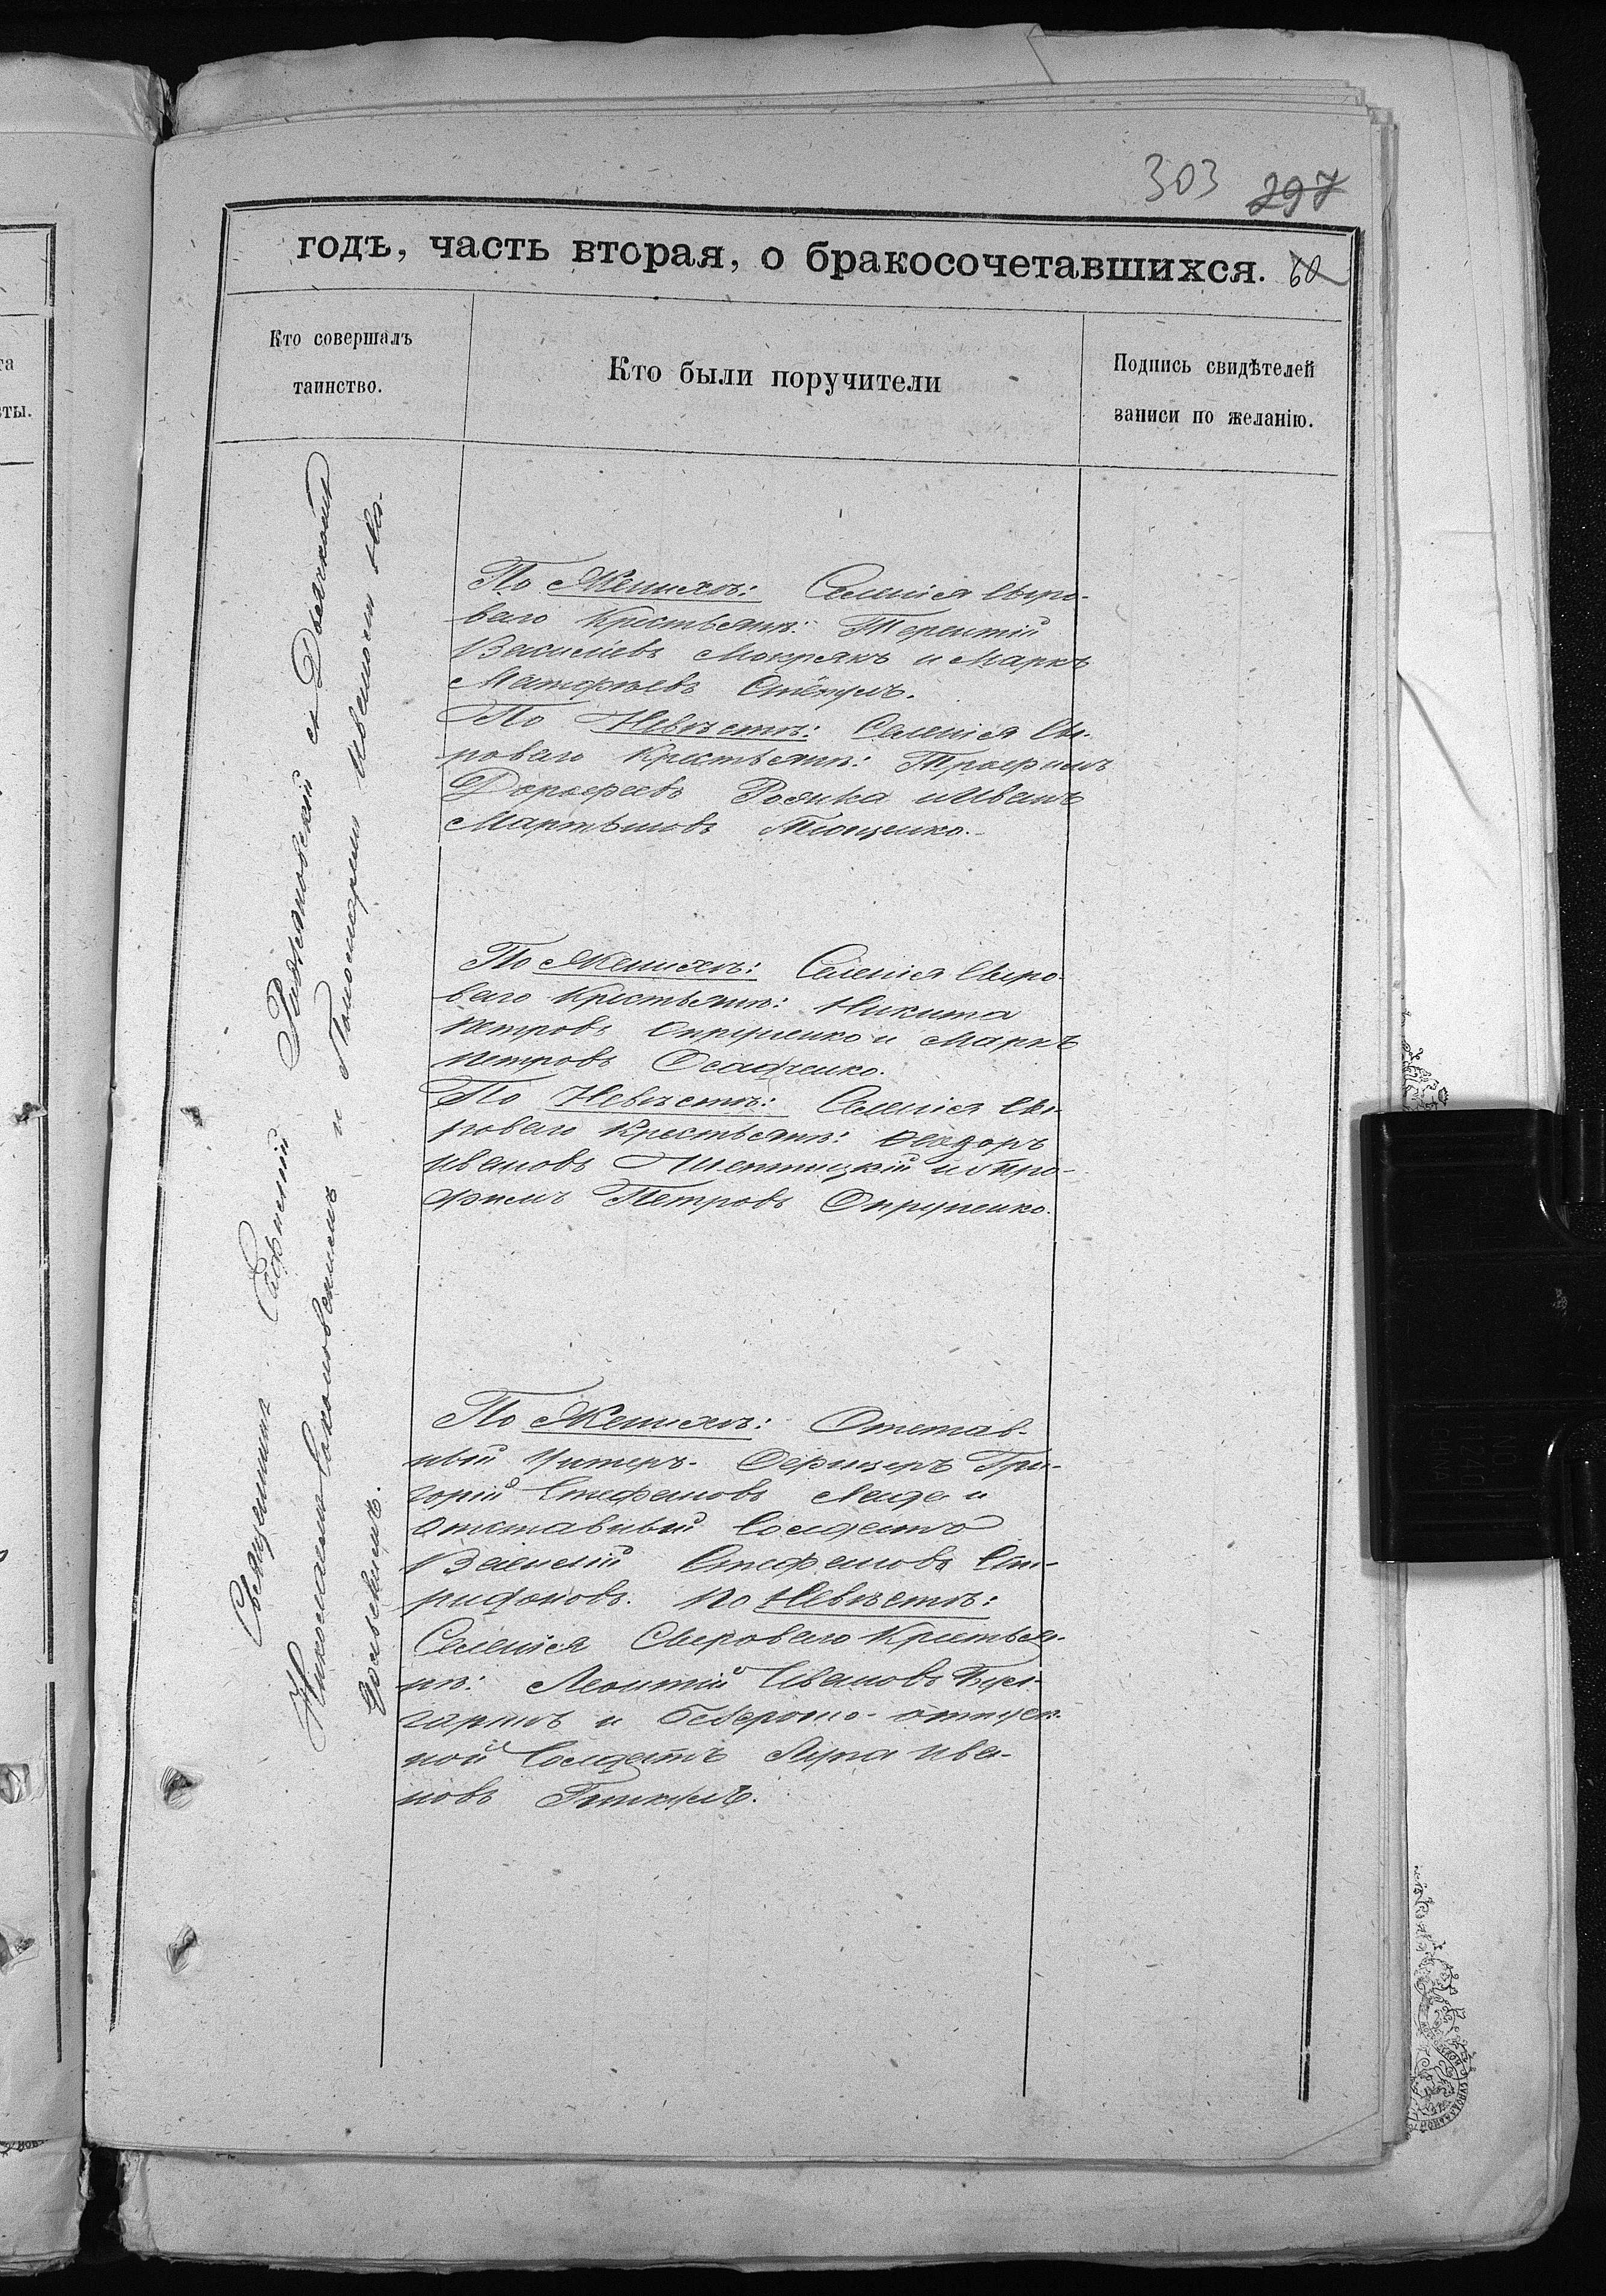 303 297
годъ, часть вторая, о бракосочетавшихся. 60
Кто совершалъ
таинство.
Кто были поручители
Подпись свидѣтелей
записи по желанію.
Священникъ Радзяновскій съ Дьячкомъ
Николаемъ и Пономаремъ Иваномъ
По Женихѣ: Селенія Сыро-
ваго Крестьяне: Терентій
Василіевъ Мокрякъ и Маркъ
Матфѣевъ
По Невѣстѣ: Селенія Сы-
роваго Крестьяне: Трофимъ
Дорофеевъ и Иванъ
Мартыновъ Тющенко.
По Женихѣ: Селенія Сыро-
ваго Крестьяне: Никита
Петровъ Опрупенко и Маркъ
Петровъ Осадченко.
По Невѣстѣ: Селенія Сы-
роваго Крестьяне: Ѳеодоръ
Ивановъ и Тро-
фимъ Петровъ Опрупенко.
По Женихѣ: Отстав-
ный Унтеръ-Офицеръ Гри-
горій Стефановъ и
Отставный Солдатъ
Василій Стефановъ Спи-
ридоновъ. По Невѣстѣ:
Селенія Сыроваго Крестья-
не: Леонтій Ивановъ Бул-
гаринъ и безсрочно-отпуск-
ной Солдатъ Лука Ива-
новъ